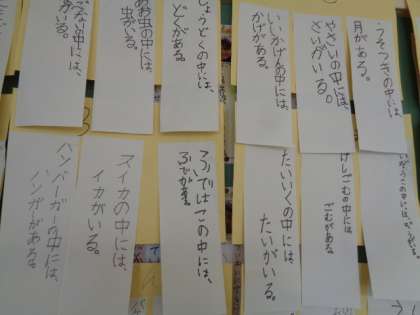 うそつきの中には、
月がある。
やさいの中には、
さいがいる。
いいかげんの中には、
かげがある。
しょうどくの中には、
どくがある。
虫の中には、
虫がいる。
ない中には、
がいる。
けしごむの中には
ごむがある
たいいくの中には、
たいがいる。
ふではこの中には、
ふでがある。
スイカの中には、
イカがいる。
ハンバーガーの中には、
バンガがある。